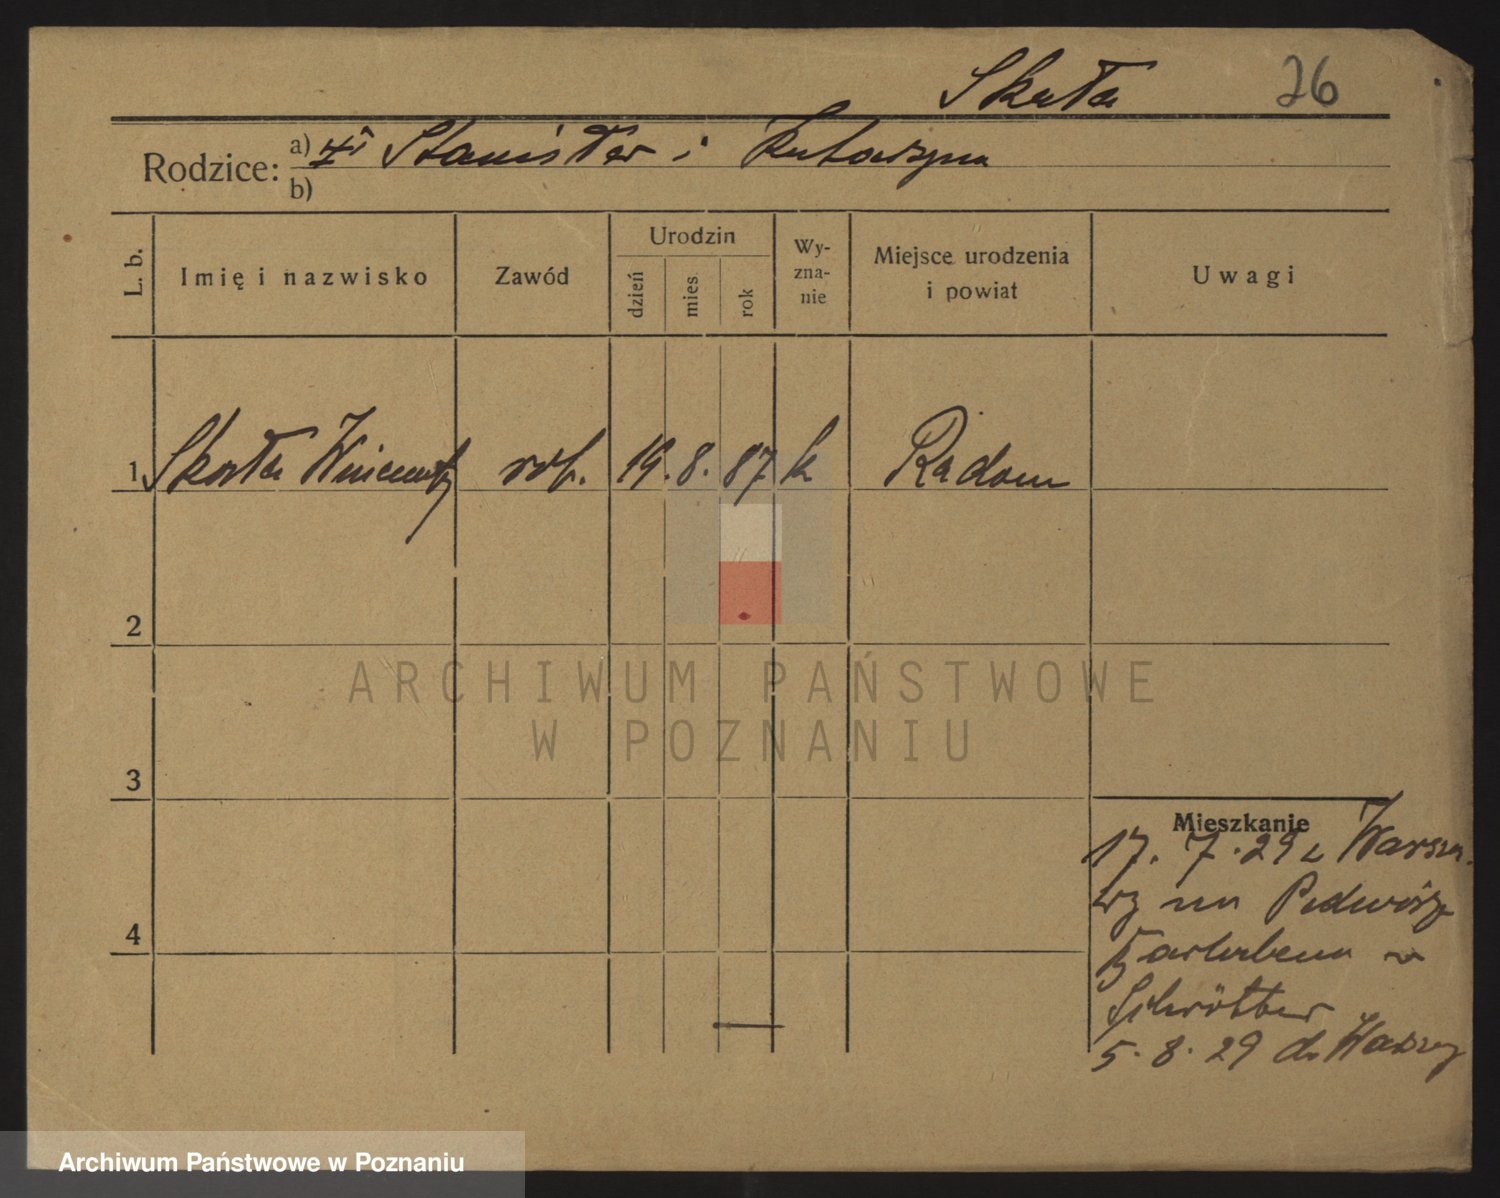 Skała 26
Rodzice: a) Stanisław i Katarzyna
b)
L. b. Imię i nazwisko Zawód Urodzin dzień mies. rok Wy-zna-nie Miejsce urodzenia i powiat Uwagi
1 Skała Wincenty rob. 19. 8. 87 k Radom
2
ARCHIWUM PAŃSTWOWE
W POZNANIU
3
Mieszkanie
17. 7. 29 z Warsza.
wy na
4
Schrötter
5. 8. 29 do Warszawy
Archiwum Państwowe w Poznaniu